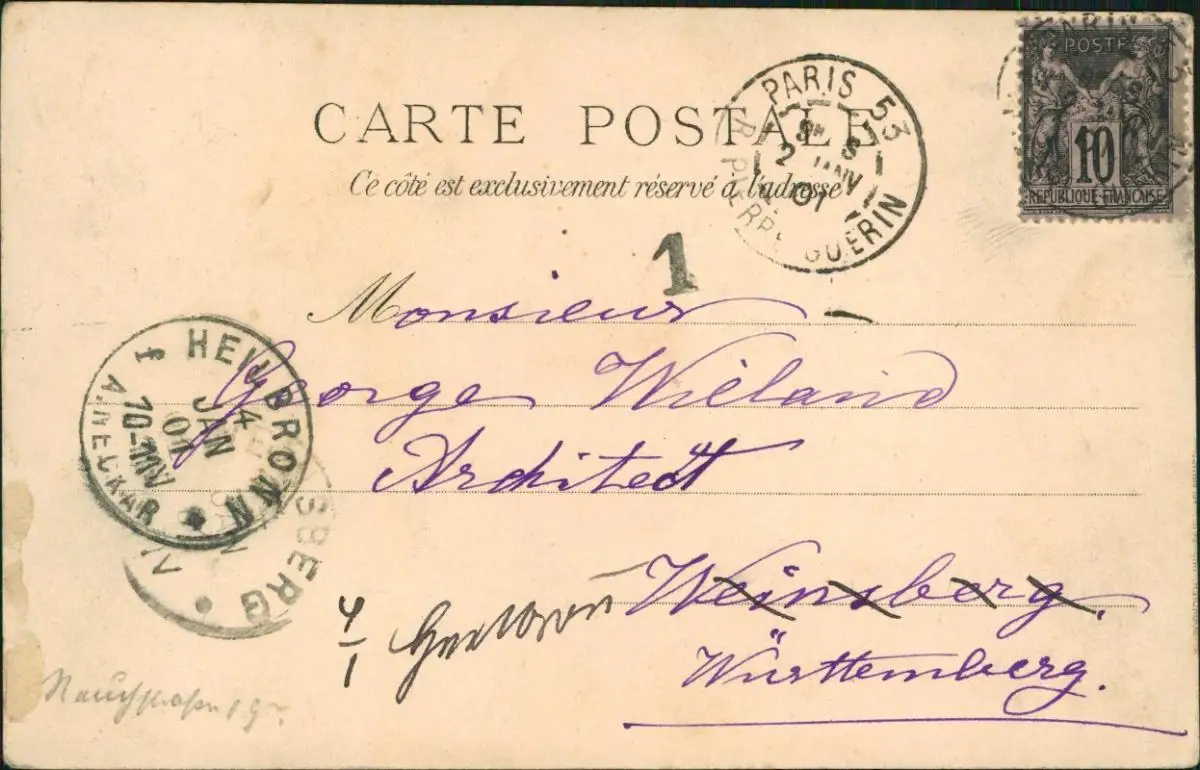 CARTE POSTALE
Ce côté est exclusivement réservé à l'adresse
PARIS 53
R. PIERRE GUERIN
2 JANV
01
POSTE
10
REPUBLIQUE FRANÇAISE
1
Monsieur
George Wieland
Architect
Weinsberg.
Württemberg.
HEILBRONN
A. NECKAR
4
JAN
01
10-11 V
SBERG
4/1 Heilbronn